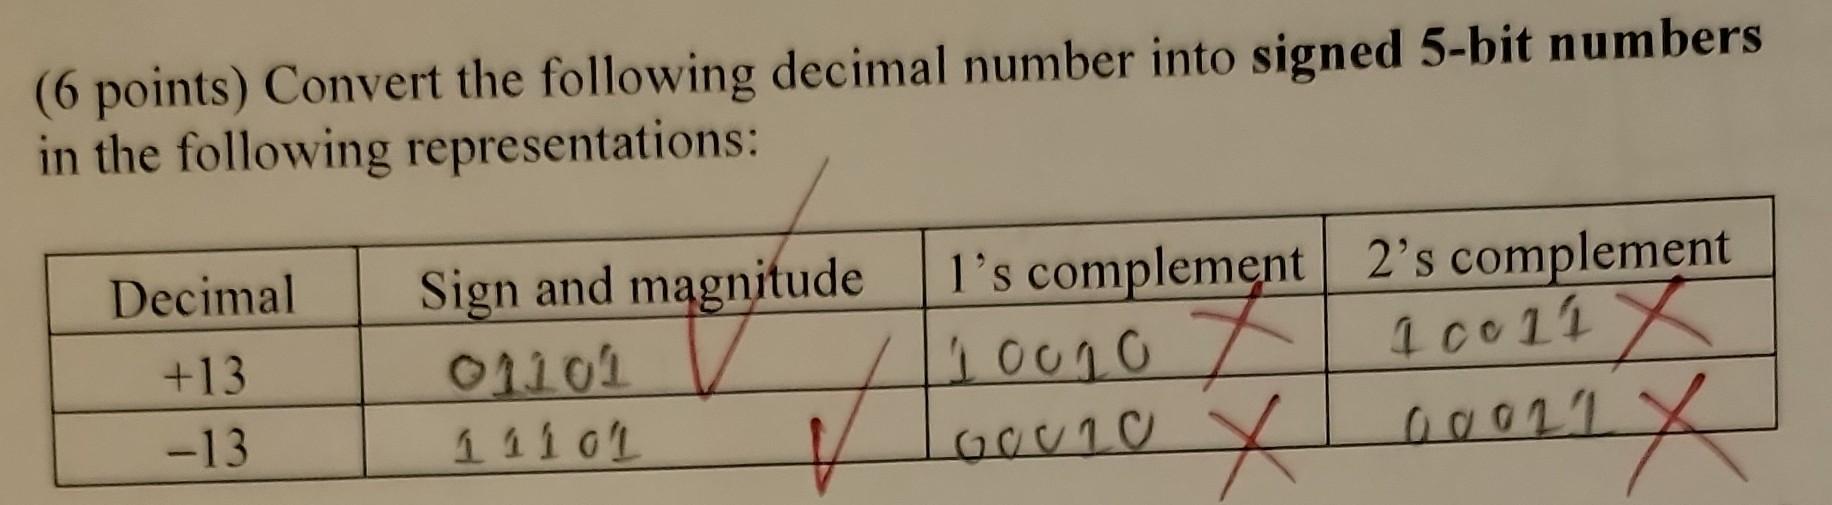 (6 points) Convert the following decimal number into signed 5-bit numbers
in the following representations:
Decimal Sign and magnitude 1's complement 2's complement
+13 01101 10010 10011
−13 11101 00010 00011